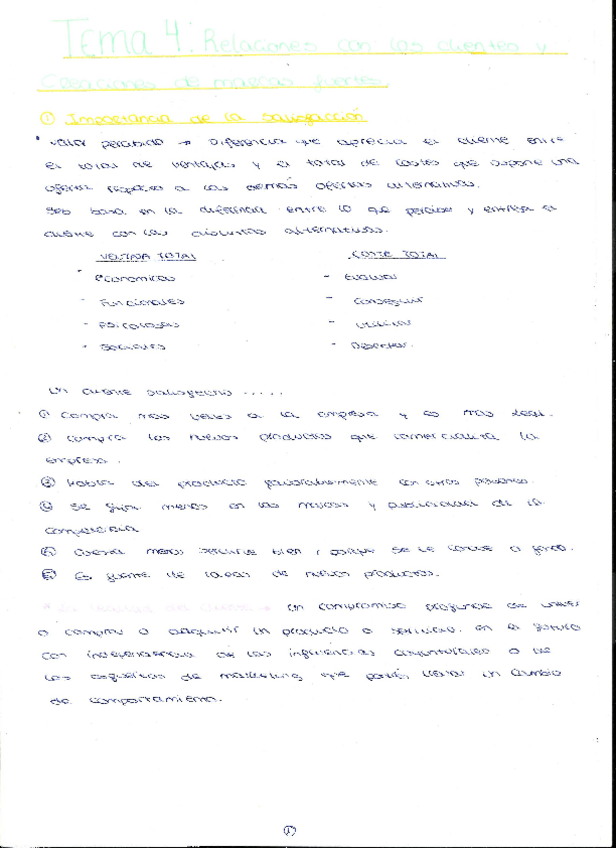 Tema 4: Relaciones con los clientes y
Creaciones de marcas fuertes.
① Importancia de la satisfacción
• Valor percibido → Diferencia que aprecia el cliente entre
el total de ventajas y el total de costes que supone una
oferta respecto a las demás ofertas alternativas.
Se basa en la diferencia entre lo que percibe y entrega el
cliente con las distintas alternativas.
VENTAJA TOTAL COSTE TOTAL
- Económicas - Evaluar
- Funcionales - Conseguir
- Psicológicas - Utilizar
- Sociales - Desechar.
Un cliente satisfecho .....
① Compra más veces a la empresa y es más leal.
② Compra los nuevos productos que comercializa la
empresa.
③ Habla del producto favorablemente con otras personas.
④ Se fija menos en las marcas y publicidad de la
competencia
Cuesta menos servirle bien, porque se le conoce a fondo.
Es fuente de ideas de nuevos productos.
* La lealtad del cliente → Un compromiso profundo de volver
a comprar o adquirir un producto o servicio, en el futuro
con independencia de las influencias coyunturales o de
los esfuerzos de marketing que puedan llevar un cambio
de comportamiento.
①